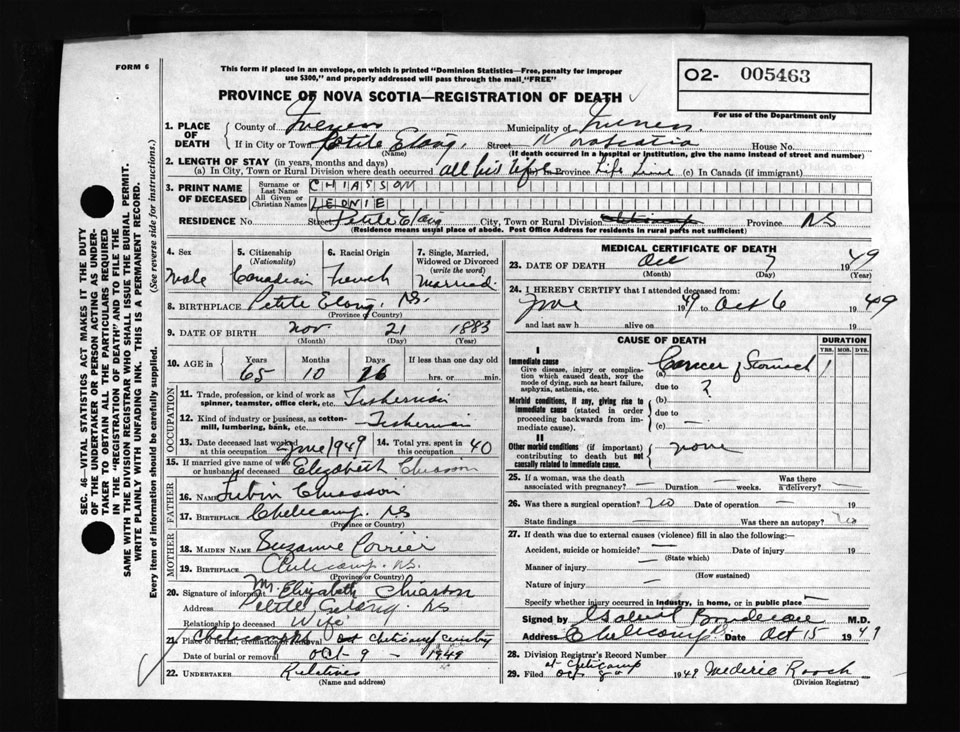 FORM 6
This form if placed in an envelope, on which is printed "Dominion Statistics—Free, penalty for improper
use $300," and properly addressed will pass through the mail "FREE"
O2- 005463
For use of the Department only
PROVINCE OF NOVA SCOTIA—REGISTRATION OF DEATH
SEC. 46—VITAL STATISTICS ACT MAKES IT THE DUTY
OF THE UNDERTAKER OR PERSON ACTING AS UNDER-
TAKER TO OBTAIN ALL THE PARTICULARS REQUIRED
IN THE "REGISTRATION OF DEATH" AND TO FILE THE
SAME WITH THE DIVISION REGISTRAR WHO SHALL ISSUE THE BURIAL PERMIT.
WRITE PLAINLY WITH UNFADING INK. THIS IS A PERMANENT RECORD.
Every item of information should be carefully supplied. (See reverse side for instructions.)
1. PLACE OF DEATH County of Inverness Municipality of Inverness.
If in City or Town Petite Etang, Street Nova Scotia House No.
(Name) (If death occurred in a hospital or institution, give the name instead of street and number)
2. LENGTH OF STAY (in years, months and days)
(a) In City, Town or Rural Division where death occurred all his life (b) In Province Life time (c) In Canada (if immigrant)
3. PRINT NAME OF DECEASED Surname or Last Name CHIASSON
All Given or Christian Names LEONIE
RESIDENCE No Street Petite Etang City, Town or Rural Division Province NS
(Residence means usual place of abode. Post Office Address for residents in rural parts not sufficient)
4. Sex 5. Citizenship (Nationality) 6. Racial Origin 7. Single, Married, Widowed or Divorced (write the word)
Male Canadian French Married
8. BIRTHPLACE Petite Etang, NS.
(Province or Country)
9. DATE OF BIRTH Nov 21 1883
(Month) (Day) (Year)
10. AGE in Years Months Days If less than one day old
65 10 16 hrs. or min.
OCCUPATION
11. Trade, profession, or kind of work as spinner, teamster, office clerk, etc. Fisherman
12. Kind of industry or business, as cotton-mill, lumbering, bank, etc. Fisherman
13. Date deceased last worked at this occupation June 1949 14. Total yrs. spent in this occupation 40
15. If married give name of wife or husband of deceased Elizabeth Chiasson
FATHER
16. NAME Lubin Chiasson
17. BIRTHPLACE Cheticamp. NS
(Province or Country)
MOTHER
18. MAIDEN NAME Suzanne Poirier
19. BIRTHPLACE Cheticamp. NS.
(Province or Country)
20. Signature of informant M. Elizabeth Chiasson
Address Petite Etang. NS
Relationship to deceased Wife
21. Place of burial, cremation or removal Cheticamp
Date of burial or removal Oct- 9 - 1949
22. UNDERTAKER Relatives
(Name and address)
MEDICAL CERTIFICATE OF DEATH
23. DATE OF DEATH Oct 7 1949
(Month) (Day) (Year)
24. I HEREBY CERTIFY that I attended deceased from:
June 1949 to Oct 6 1949
and last saw h alive on 19
CAUSE OF DEATH DURATION
YRS. MOS. DYS.
I
Immediate cause
Give disease, injury or complication which caused death, nor the mode of dying, such as heart failure, asphyxia, asthenia, etc.
(a) Cancer of Stomach 1
due to ?
Morbid conditions, if any, giving rise to immediate cause (stated in order proceeding backwards from immediate cause).
(b)
due to
(c) —
II
Other morbid conditions (if important) contributing to death but not causally related to immediate cause.
none
25. If a woman, was the death associated with pregnancy? — Duration — weeks. Was there a delivery? —
26. Was there a surgical operation? No Date of operation 19
State findings — Was there an autopsy? No
27. If death was due to external causes (violence) fill in also the following:
Accident, suicide or homicide? — Date of injury 19
(State which)
Manner of injury —
(How sustained)
Nature of injury —
Specify whether injury occurred in industry, in home, or in public place —
Signed by M.D.
Address Cheticamp Date Oct 15 1949
28. Division Registrar's Record Number
29. Filed at Cheticamp Oct 1949 Mederic Roach
(Division Registrar)